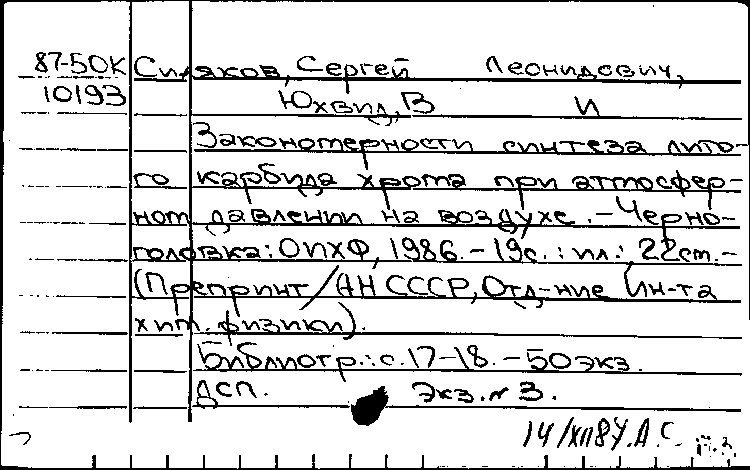 87-50К Силяков, Сергей Леонидович,
10193 Юхвид, В И
Закономерности синтеза лито-
го карбида хрома при атмосфер-
ном давлении на воздухе. - Черно-
головка: ОИХФ, 1986. - 19с. : ил.; 22см. -
(Препринт / АН СССР, Отд-ние Ин-та
хим. физики).
Библиогр.: с. 17-18. - 50 экз.
ДСП. Экз. № 3.
14/XII 87. А.С.